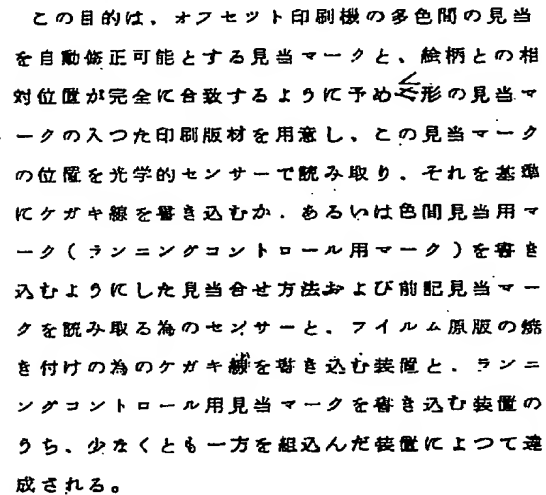 この目的は、オフセット印刷機の多色間の見当
を自動修正可能とする見当マークと、絵柄との相
対位置が完全に合致するように予め<形の見当マ
ークの入つた印刷版材を用意し、この見当マーク
の位置を光学的センサーで読み取り、それを基準
にケガキ線を書き込むか、あるいは色間見当用マ
ーク(ランニングコントロール用マーク)を書き
込むようにした見当合せ方法および前記見当マー
クを読み取る為のセンサーと、フイルム原版の焼
き付けの為のケガキ線を書き込む装置と、ランニ
ングコントロール用見当マークを書き込む装置の
うち、少なくとも一方を組込んだ装置によつて達
成される。